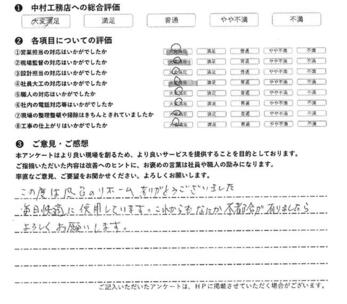 ❶ 中村工務店への総合評価
大変満足 満足 普通 やや不満 不満
❷ 各項目についての評価
①営業担当の対応はいかがでしたか 満足 普通 やや不満 不満
②現場監督の対応はいかがでしたか 満足 普通 やや不満 不満
③設計担当の対応はいかがでしたか 満足 普通 やや不満 不満
④社員大工の対応はいかがでしたか 満足 普通 やや不満 不満
⑤職人の対応はいかがでしたか 大変満足 満足 普通 やや不満 不満
⑥社内の電話対応等はいかがでしたか 満足 普通 やや不満 不満
⑦現場の整理整頓や掃除はきちんとされていましたか 満足 普通 やや不満 不満
⑧工事の仕上がりはいかがでしたか 満足 普通 やや不満 不満
❸ ご意見・ご感想
本アンケートはより良い現場を創るため、より良いサービスを提供することを目的としております。
ご指摘いただいた内容は改善へのヒントに、お褒めの言葉は社員や職人の励みになります。
率直なご意見、ご要望をお聞かせください。よろしくお願いします。
この度は風呂のリホームありがとうございました
毎日快適に使用しています。これからもなたか不都合が有りましたら
よろしくお願いします。
ご記入いただいたアンケートは、HPに掲載させていただく場合がございます。